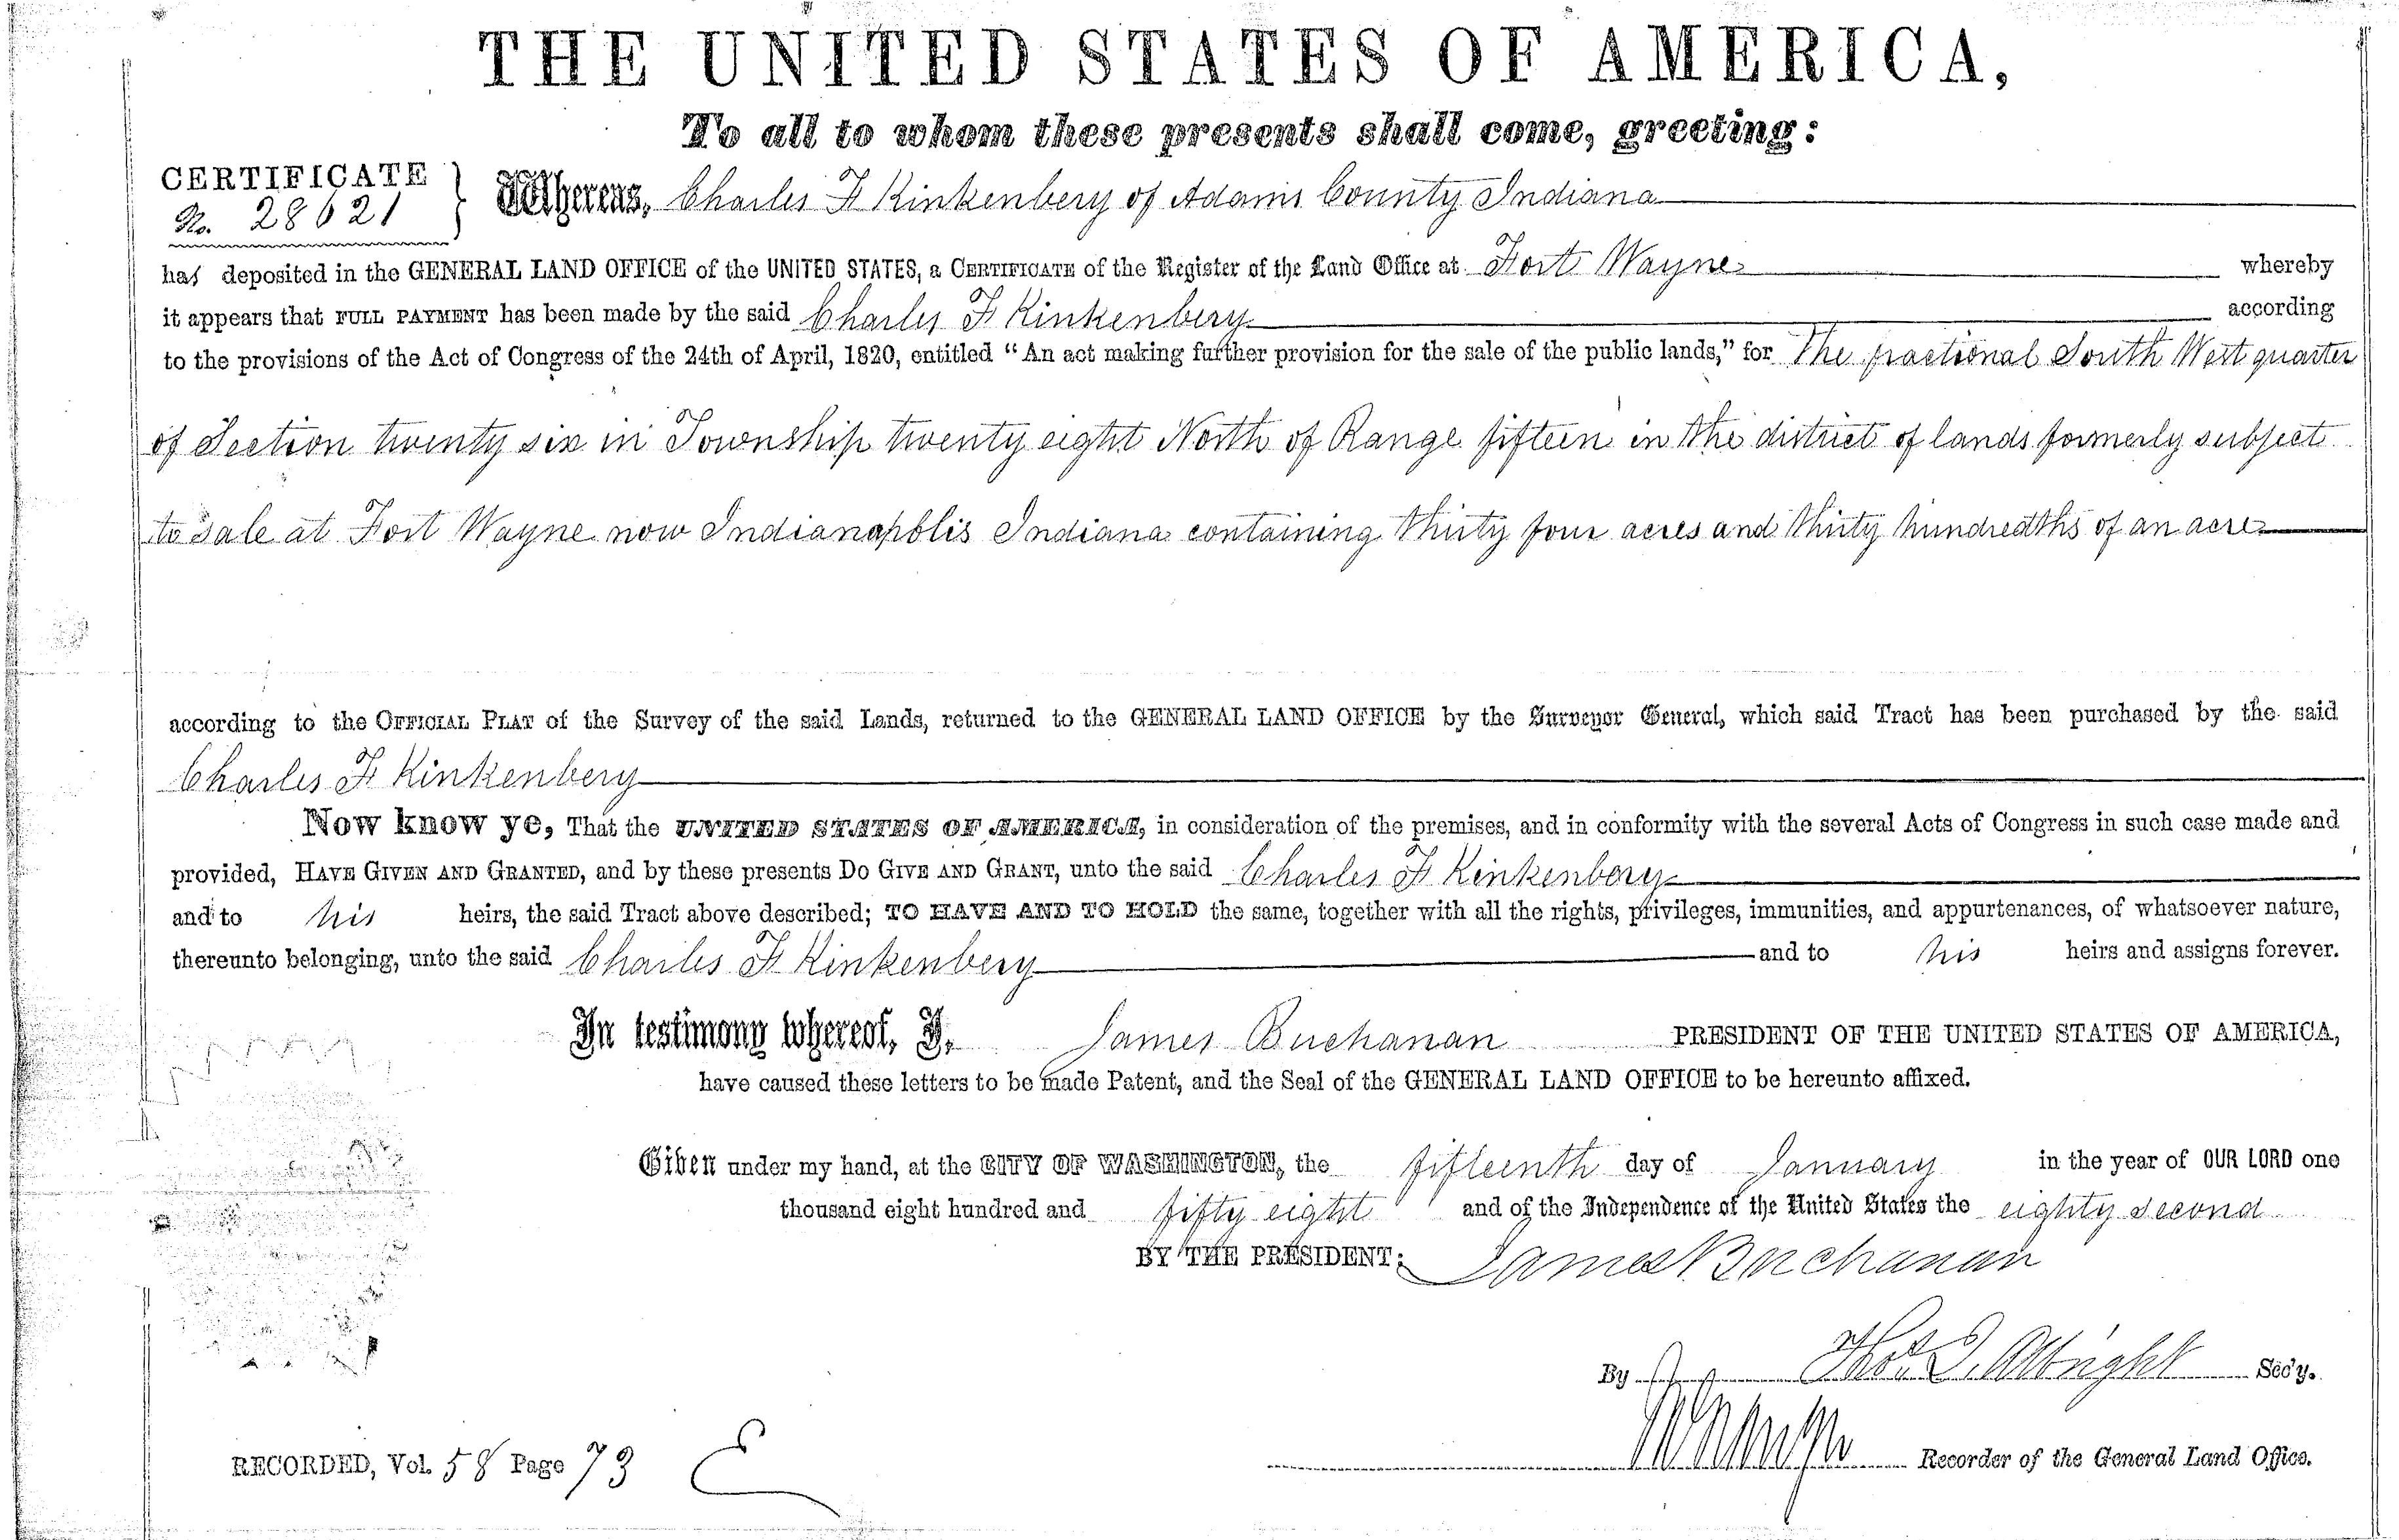 THE UNITED STATES OF AMERICA,
To all to whom these presents shall come, greeting:
CERTIFICATE
No. 28621
Whereas, Charles F Kinkenbery of Adams County Indiana
has deposited in the GENERAL LAND OFFICE of the UNITED STATES, a CERTIFICATE of the Register of the Land Office at Fort Wayne whereby
it appears that FULL PAYMENT has been made by the said Charles F Kinkenbery according
to the provisions of the Act of Congress of the 24th of April, 1820, entitled "An act making further provision for the sale of the public lands," for The fractional South West quarter
of Section twenty six in Township twenty eight North of Range fifteen in the district of lands formerly subject
to sale at Fort Wayne now Indianapolis Indiana containing thirty four acres and thirty hundredths of an acre
according to the OFFICIAL PLAT of the Survey of the said Lands, returned to the GENERAL LAND OFFICE by the Surveyor General, which said Tract has been purchased by the said
Charles F Kinkenbery
Now know ye, That the UNITED STATES OF AMERICA, in consideration of the premises, and in conformity with the several Acts of Congress in such case made and
provided, HAVE GIVEN AND GRANTED, and by these presents DO GIVE AND GRANT, unto the said Charles F Kinkenbery
and to his heirs, the said Tract above described; TO HAVE AND TO HOLD the same, together with all the rights, privileges, immunities, and appurtenances, of whatsoever nature,
thereunto belonging, unto the said Charles F Kinkenbery and to his heirs and assigns forever.
In testimony whereof, I, James Buchanan PRESIDENT OF THE UNITED STATES OF AMERICA,
have caused these letters to be made Patent, and the Seal of the GENERAL LAND OFFICE to be hereunto affixed.
Given under my hand, at the CITY OF WASHINGTON, the fifteenth day of January in the year of OUR LORD one
thousand eight hundred and fifty eight and of the Independence of the United States the eighty second
BY THE PRESIDENT: James Buchanan
By Thos. J. Albright Sec'y.
Recorder of the General Land Office.
RECORDED, Vol. 58 Page 73